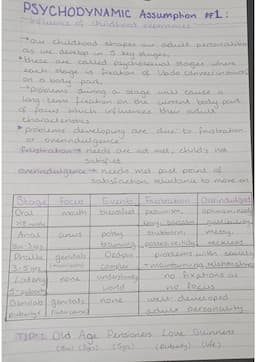 PSYCHODYNAMIC Assumption #1:
Influence of childhood experiences
→ our childhood shapes our adult personalities
as we develop in 5 key stages.
• these are called psychosexual stages where
each stage is fixation of libido
on a body part.
→ problems during a stage will cause a
long term fixation on the current body part
of focus which influences their adult
characteristics
• problems developing are due to frustration
or overindulgence
Frustration → needs are not met, child's not
satisfied
overindulgence → needs met past point of
satisfaction, reluctance to move on
Stage Focus Events Frustration Overindulged
Oral mouth breastfeed pessimism,
Anal anus potty stubborn, messy,
training possessive reckless
Phallic genitals Oedipus problems with
complex maintaining relationships
none no fixations as
world no focus
genitals none well-developed
puberty adult personality
Old Age Pensioners Love Guinness
(puberty) (life)